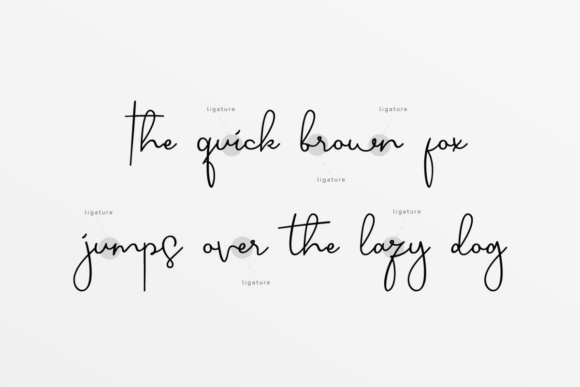 ligature ligature
the quick brown fox
ligature
ligature ligature
jumps over the lazy dog
ligature